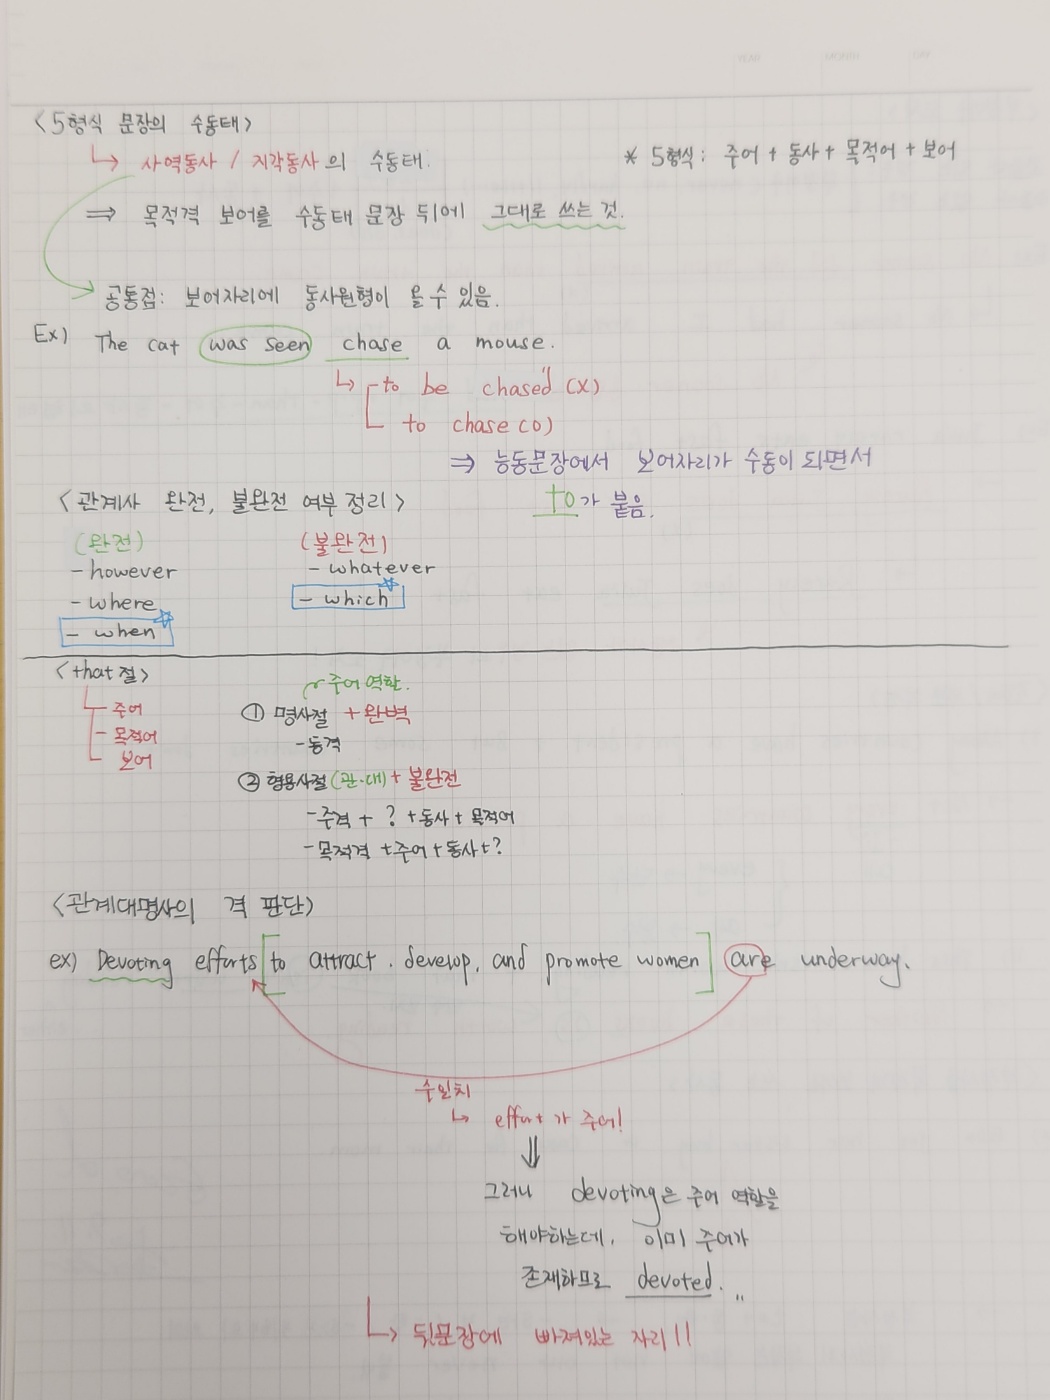 <5형식 문장의 수동태>
↳ 사역동사 / 지각동사의 수동태.
* 5형식: 주어 + 동사 + 목적어 + 보어
⇒ 목적격 보어를 수동태 문장 뒤에 그대로 쓰는 것.
공통점: 보어자리에 동사원형이 올 수 있음.
Ex) The cat was seen chase a mouse.
↳ to be chased (X)
to chase (O)
⇒ 능동문장에서 보어자리가 수동이 되면서
to가 붙음.
<관계사 완전, 불완전 여부 정리>
(완전) (불완전)
- however - whatever
- where - which
- when
<that 절>
주어 역할.
- 주어 ① 명사절 + 완벽
- 목적어 - 동격
- 보어
② 형용사절 (관·대) + 불완전
- 주격 + ? + 동사 + 목적어
- 목적격 + 주어 + 동사 + ?
<관계대명사의 격 판단>
ex) Devoting efforts [to attract, develop, and promote women] are underway.
수일치
↳ effort가 주어!
⇓
그러니 devoting은 주어 역할을
해야하는데, 이미 주어가
존재하므로 devoted.
↳ 뒷문장에 빠져있는 자리!!